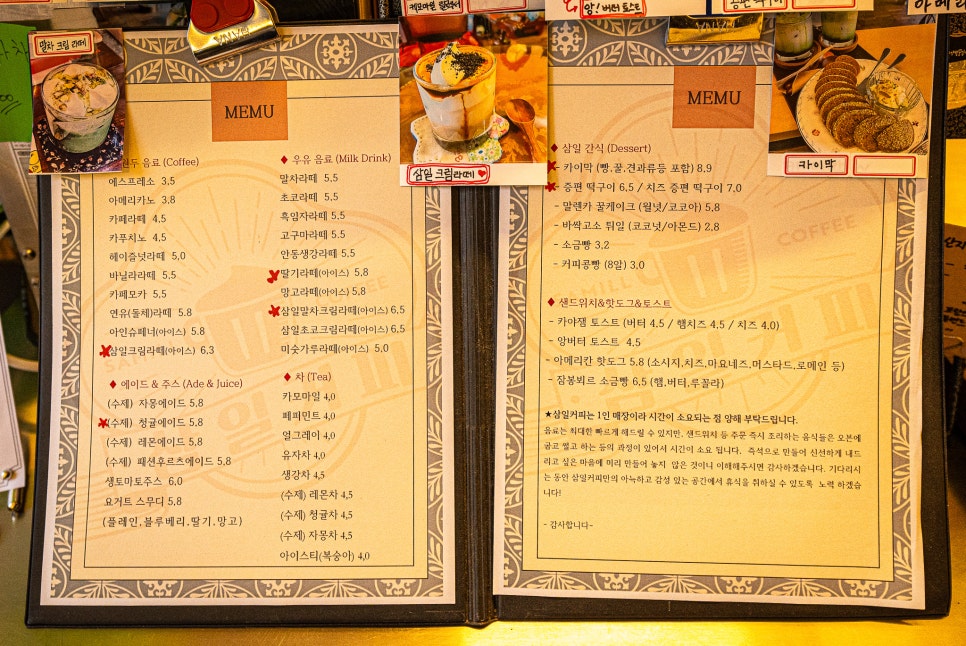 말차 크림 라떼
삼일 크림라떼
앙! 버터 토스트
카이막
MEMU
원두 음료 (Coffee)
에스프레소 3,5
아메리카노 3.8
카페라떼 4,5
카푸치노 4,5
헤이즐넛라떼 5,0
바닐라라떼 5.5
카페모카 5,5
연유(돌체)라떼 5.8
아인슈페너(아이스) 5.8
삼일크림라떼(아이스) 6,3
♦ 에이드 & 주스 (Ade & Juice)
(수제) 자몽에이드 5.8
(수제) 청귤에이드 5.8
(수제) 레몬에이드 5.8
(수제) 패션후르츠에이드 5.8
생토마토주스 6.0
요거트 스무디 5,8
(플레인,블루베리,딸기,망고)
♦ 우유 음료 (Milk Drink)
말차라떼 5.5
초코라떼 5.5
흑임자라떼 5.5
고구마라떼 5.5
안동생강라떼 5.5
딸기라떼(아이스) 5.8
망고라떼(아이스) 5.8
삼일말차크림라떼(아이스) 6.5
삼일초코크림라떼(아이스) 6.5
미숫가루라떼(아이스) 5.0
♦ 차 (Tea)
카모마일 4,0
페퍼민트 4,0
얼그레이 4,0
유자차 4,0
생강차 4,5
(수제) 레몬차 4,5
(수제) 청귤차 4,5
(수제) 자몽차 4,5
아이스티(복숭아) 4,0
MEMU
♦ 삼일 간식 (Dessert)
카이막 (빵,꿀,견과류등 포함) 8.9
증편 떡구이 6.5 / 치즈 증편 떡구이 7.0
- 말렌카 꿀케이크 (월넛/코코아) 5.8
- 바싹고소 튀일 (코코넛/아몬드) 2.8
- 소금빵 3.2
- 커피콩빵 (8알) 3.0
♦ 샌드위치&핫도그&토스트
- 카야잼 토스트 (버터 4.5 / 햄치즈 4.5 / 치즈 4.0)
- 앙버터 토스트 4.5
- 아메리칸 핫도그 5.8 (소시지,치즈,마요네즈,머스타드,로메인 등)
- 잠봉뵈르 소금빵 6.5 (햄,버터,루꼴라)
★삼일커피는 1인 매장이라 시간이 소요되는 점 양해 부탁드립니다.
음료는 최대한 빠르게 해드릴 수 있지만, 샌드위치 등 주문 즉시 조리하는 음식들은 오븐에
굽고 썰고 하는 등의 과정이 있어서 시간이 소요 됩니다. 즉석으로 만들어 신선하게 내드
리고 싶은 마음에 미리 만들어 놓지 않은 것이니 이해해주시면 감사하겠습니다. 기다리시
는 동안 삼일커피만의 아늑하고 감성 있는 공간에서 휴식을 취하실 수 있도록 노력 하겠습
니다!
- 감사합니다~